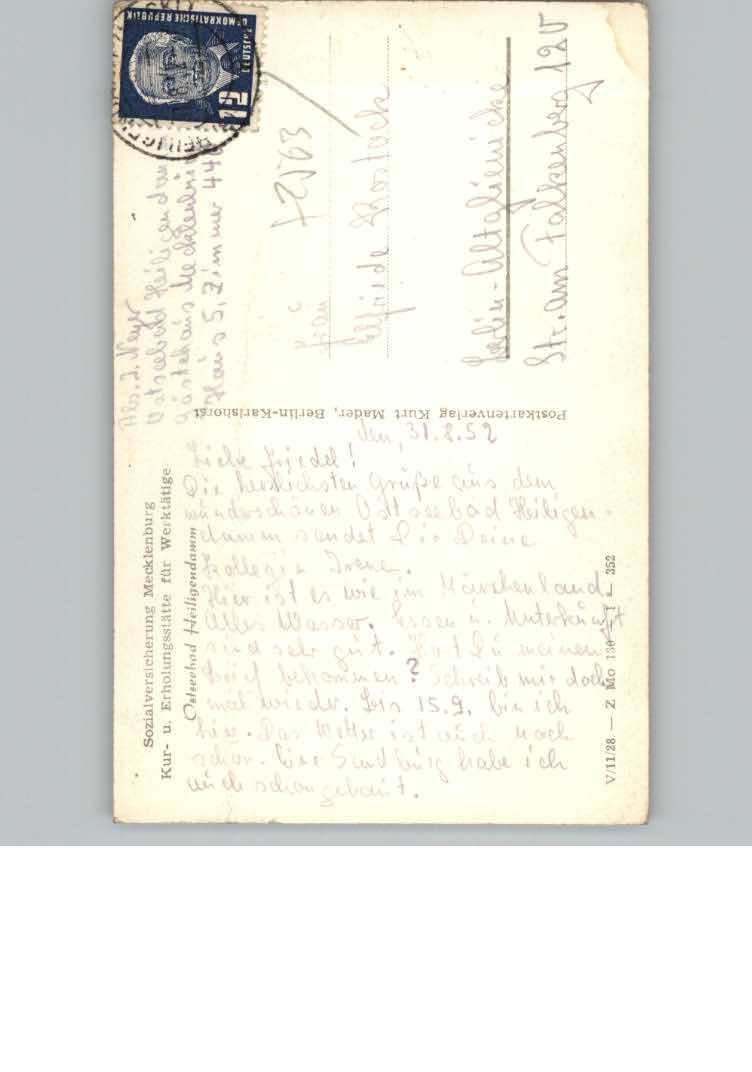 Sozialversicherung Mecklenburg
Kur- u. Erholungsstätte für Werktätige
Ostseebad Heiligendamm
den, 31.8.52
Liebe Friedel!
Die herzlichsten Grüße aus dem
wunderschönen Ostseebad Heiligen-
damm sendet Dir Deine
Kollegin Irene.
Hier ist es wie im Märchenland.
Alles Wasser. Essen u. Unterkunft
sind sehr gut. Hast Du meinen
Brief bekommen? Schreib mir doch
mal wieder. Bis 15.9. bin ich
hier. Das Wetter ist auch noch
schön. Eine Sandburg habe ich
auch schon gebaut.
V/11/28 — Z Mo 352
Postkartenverlag Kurt Mader, Berlin-Karlshorst
Abs. I.
Ostseebad Heiligendamm
Gästehaus Mecklenburg
Haus 5, Zimmer 44
DEUTSCHE
DEMOKRATISCHE REPUBLIK
Frau
Elfriede Rostock
Berlin-Altglienicke
Str. Am Falkenberg 120